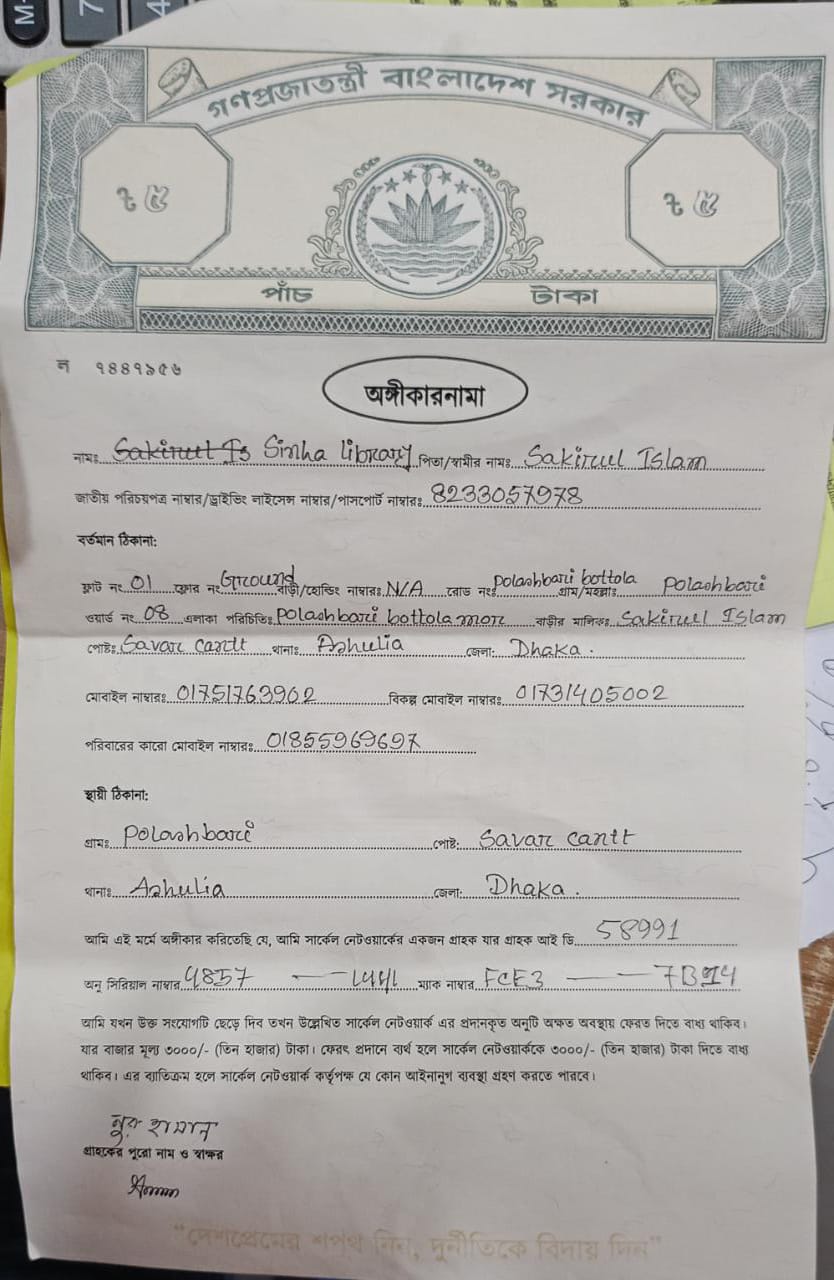 M-
7
4
গণপ্রজাতন্ত্রী বাংলাদেশ সরকার
৳ ৫ ৳ ৫
পাঁচ টাকা
ন ৭৪৪৭৯৫৬
অঙ্গীকারনামা
নামঃ Sakirul Is Simha Library পিতা/স্বামীর নামঃ Sakirul Islam
জাতীয় পরিচয়পত্র নাম্বার/ড্রাইভিং লাইসেন্স নাম্বার/পাসপোর্ট নাম্বারঃ 8233057978
বর্তমান ঠিকানা:
ফ্লাট নং 01 ফ্লোর নং Ground বাড়ী/হোল্ডিং নাম্বারঃ N/A রোড নংঃ polashbari bottola গ্রাম/মহল্লাঃ Polashbari
ওয়ার্ড নং 08 এলাকা পরিচিতিঃ Polashbari bottola mor বাড়ীর মালিকঃ Sakirul Islam
পোষ্টঃ Savar Cantt থানাঃ Ashulia জেলা: Dhaka.
মোবাইল নাম্বারঃ 01751763902 বিকল্প মোবাইল নাম্বারঃ 01731405002
পরিবারের কারো মোবাইল নাম্বারঃ 01855969697
স্থায়ী ঠিকানা:
গ্রামঃ Polashbari পোষ্ট: Savar Cantt
থানাঃ Ashulia জেলা: Dhaka.
আমি এই মর্মে অঙ্গীকার করিতেছি যে, আমি সার্কেল নেটওয়ার্কের একজন গ্রাহক যার গ্রাহক আই ডি 58991
অনু সিরিয়াল নাম্বার 4857 — ম্যাক নাম্বার FCE3 —
আমি যখন উক্ত সংযোগটি ছেড়ে দিব তখন উল্লেখিত সার্কেল নেটওয়ার্ক এর প্রদানকৃত অনুটি অক্ষত অবস্থায় ফেরত দিতে বাধ্য থাকিব।
যার বাজার মূল্য ৩০০০/- (তিন হাজার) টাকা। ফেরৎ প্রদানে ব্যর্থ হলে সার্কেল নেটওয়ার্ককে ৩০০০/- (তিন হাজার) টাকা দিতে বাধ্য
থাকিব। এর ব্যতিক্রম হলে সার্কেল নেটওয়ার্ক কর্তৃপক্ষ যে কোন আইনানুগ ব্যবস্থা গ্রহণ করতে পারবে।
নুর হাসান
গ্রাহকের পুরো নাম ও স্বাক্ষর
"দেশপ্রেমের শপথ নিন, দুর্নীতিকে বিদায় দিন"